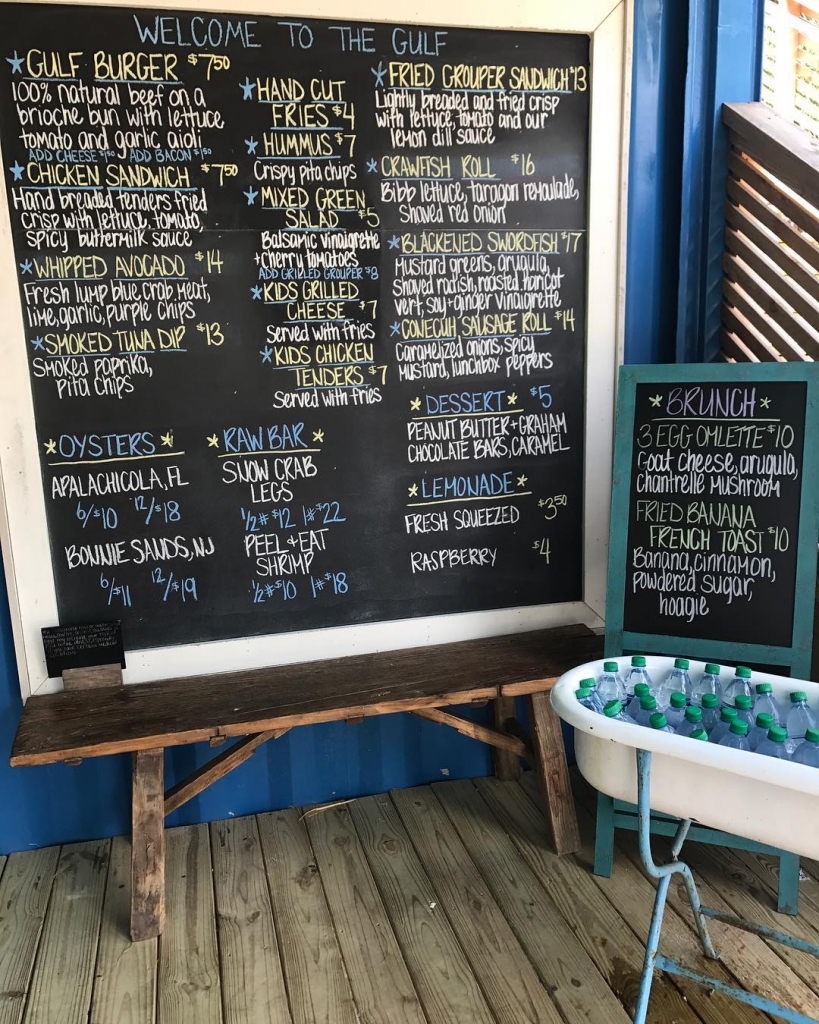 WELCOME TO THE GULF
GULF BURGER $7.50
100% natural beef on a
brioche bun with lettuce
tomato and garlic aioli
ADD CHEESE $1.50 ADD BACON $1.50
CHICKEN SANDWICH $7.50
Hand breaded tenders fried
crisp with lettuce, tomato,
spicy buttermilk sauce
WHIPPED AVOCADO $14
Fresh lump blue crab meat,
lime, garlic, purple chips
SMOKED TUNA DIP $13
Smoked paprika,
pita chips
HAND CUT
FRIES $4
HUMMUS $7
Crispy pita chips
MIXED GREEN
SALAD $5
Balsamic vinaigrette
+ cherry tomatoes
ADD GRILLED GROUPER $8
KIDS GRILLED
CHEESE $7
Served with fries
KIDS CHICKEN
TENDERS $7
Served with fries
FRIED GROUPER SANDWICH $13
Lightly breaded and fried crisp
with lettuce, tomato and our
lemon dill sauce
CRAWFISH ROLL $16
Bibb lettuce, taragon remoulade,
Shaved red onion
BLACKENED SWORDFISH $17
Mustard greens, arugula,
shaved radish, roasted haricot
vert, soy + ginger vinaigrette
CONECUH SAUSAGE ROLL $14
Caramelized onions, spicy
mustard, lunchbox peppers
DESSERT $5
PEANUT BUTTER + GRAHAM
CHOCOLATE BARS, CARAMEL
LEMONADE
FRESH SQUEEZED $3.50
RASPBERRY $4
OYSTERS
APALACHICOLA, FL
6/$10 12/$18
BONNIE SANDS, NJ
6/$11 12/$19
RAW BAR
SNOW CRAB
LEGS
1/2# $12 1# $22
PEEL + EAT
SHRIMP
1/2# $10 1# $18
BRUNCH
3 EGG OMLETTE $10
Goat cheese, arugula,
chantrelle mushroom
FRIED BANANA
FRENCH TOAST $10
Banana, cinnamon,
powdered sugar,
hoagie